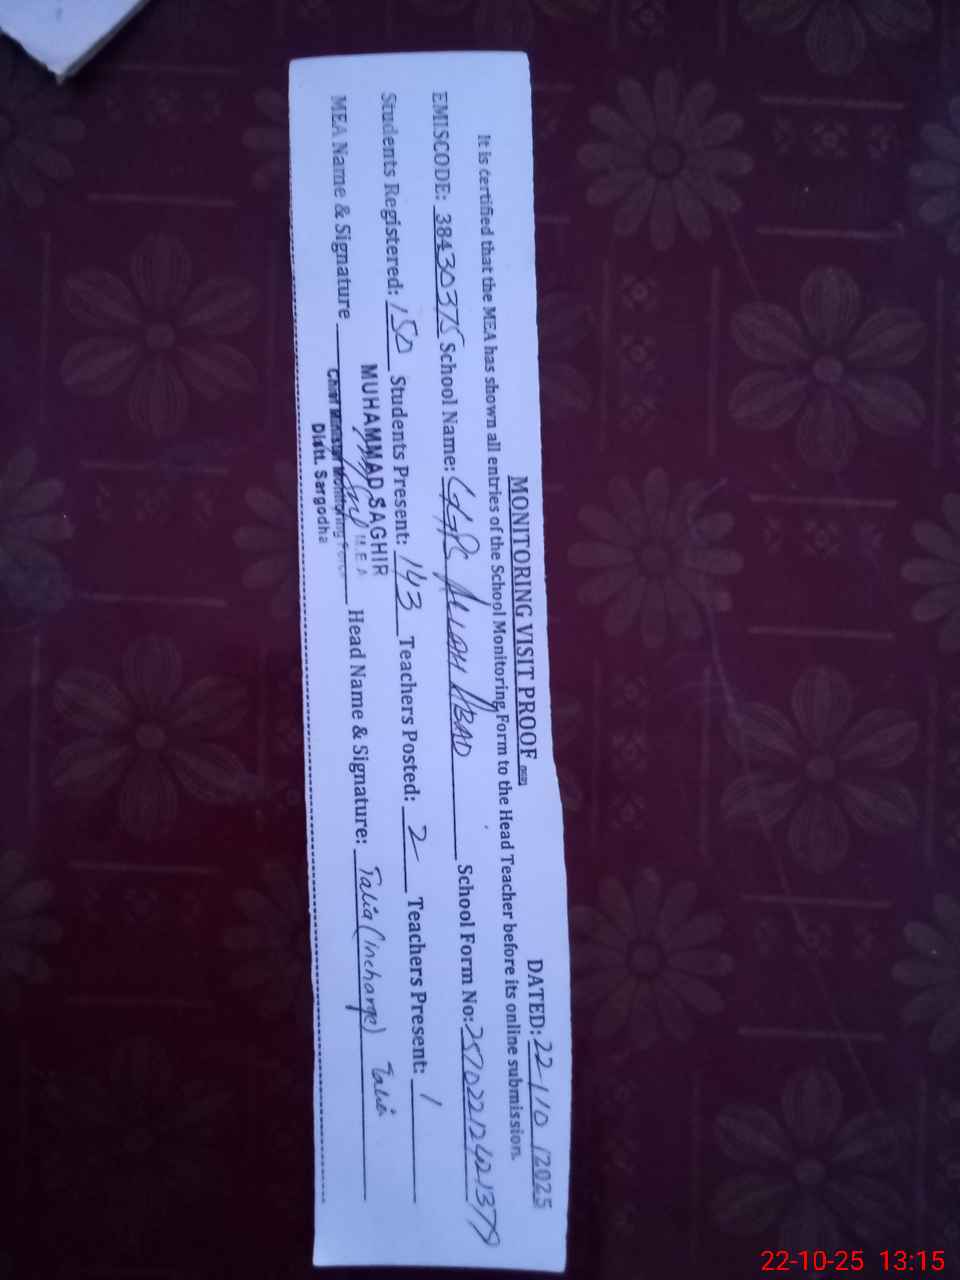 MONITORING VISIT PROOF
DATED: 22/10/2025
It is certified that the MEA has shown all entries of the School Monitoring Form to the Head Teacher before its online submission.
EMISCODE: 38430375 School Name: GGPS ALLAH ABAD School Form No:
Students Registered: 150 Students Present: 143 Teachers Posted: 2 Teachers Present: 1
MUHAMMAD SAGHIR
M.E.A
MEA Name & Signature Head Name & Signature: Talia (incharge) Talia
Chief Minister Monitoring Force
Distt. Sargodha
22-10-25 13:15